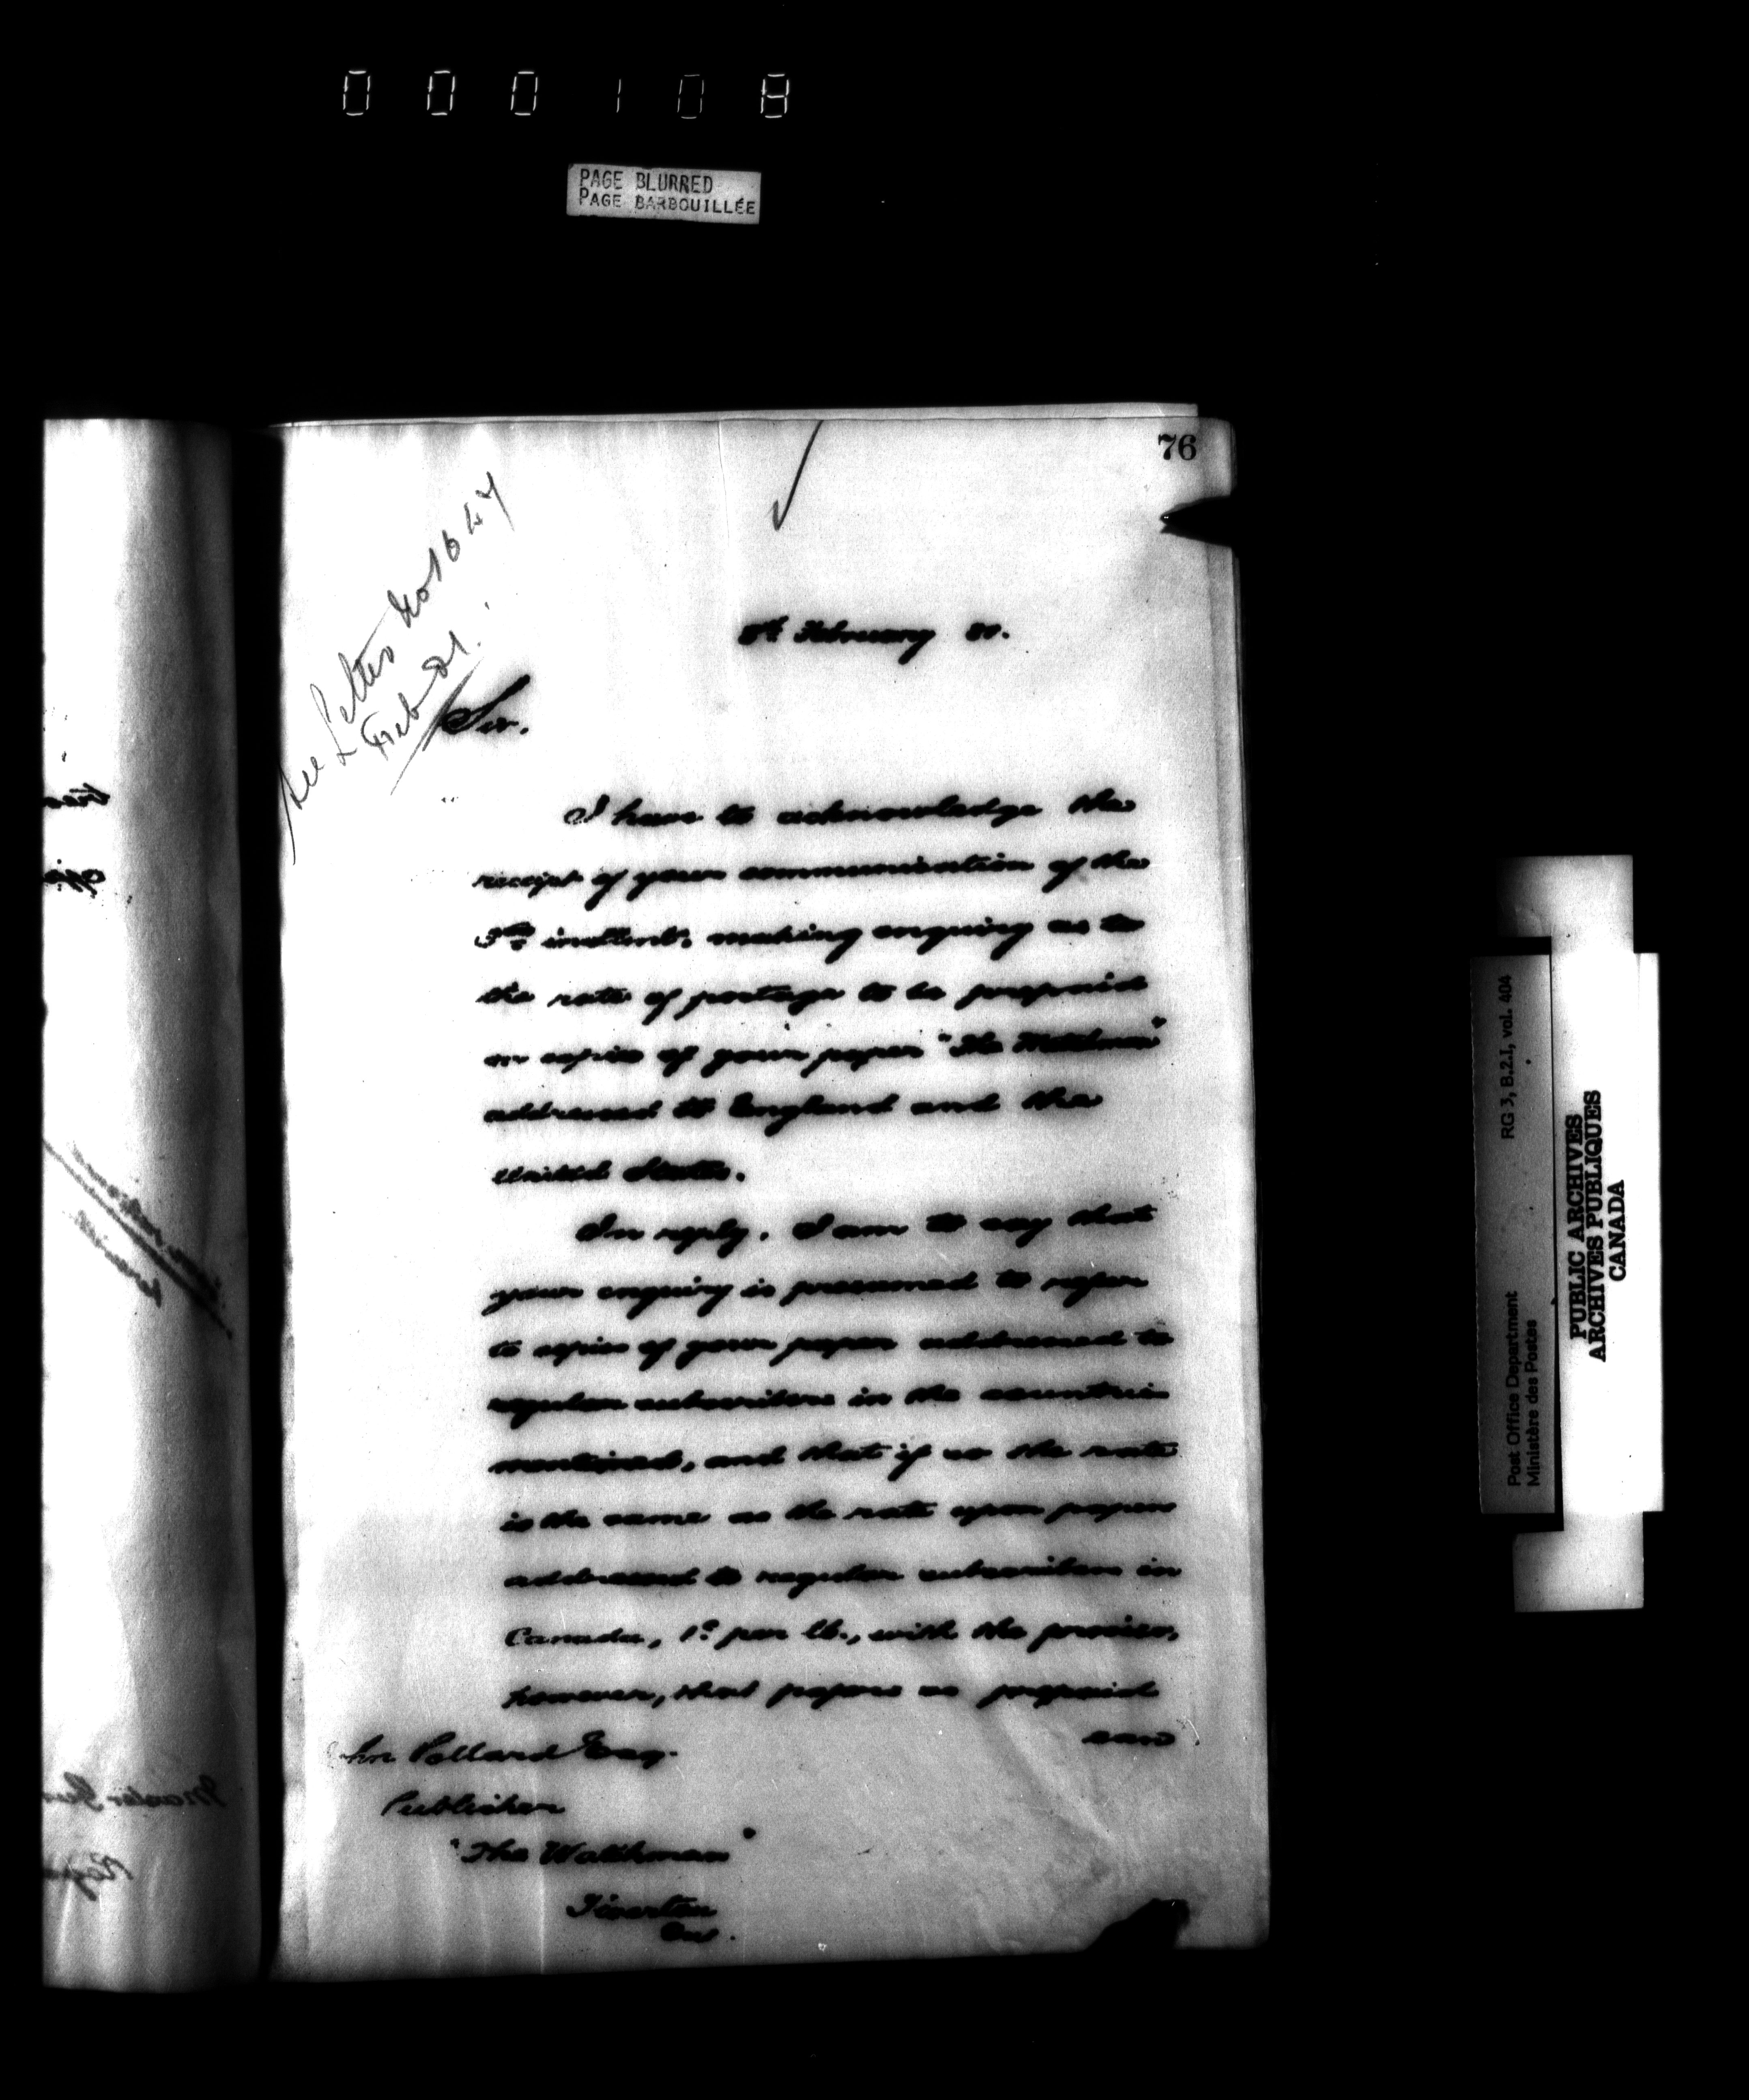 000108
PAGE BLURRED
PAGE BARBOUILLÉE
76
See Letter No 1647
Feb 21.
5th February 80.
Sir.
I have to acknowledge the
receipt of your communication of the
3rd instant, making enquiry as to
the rate of postage to be prepaid
on copies of your paper "The Watchman"
addressed to England and the
United States.
In reply, I am to say that
your enquiry is presumed to refer
to copies of your paper addressed to
regular subscribers in the countries
mentioned, and that if so the rate
is the same as the rate upon papers
addressed to regular subscribers in
Canada, 1c per lb., with the proviso,
however, that papers so prepaid
can
John Pollard Esq.
Publisher
"The Watchman"
Tiverton
Ont.
RG 3, B.2.1, vol. 404
Post Office Department
Ministère des Postes
PUBLIC ARCHIVES
ARCHIVES PUBLIQUES
CANADA